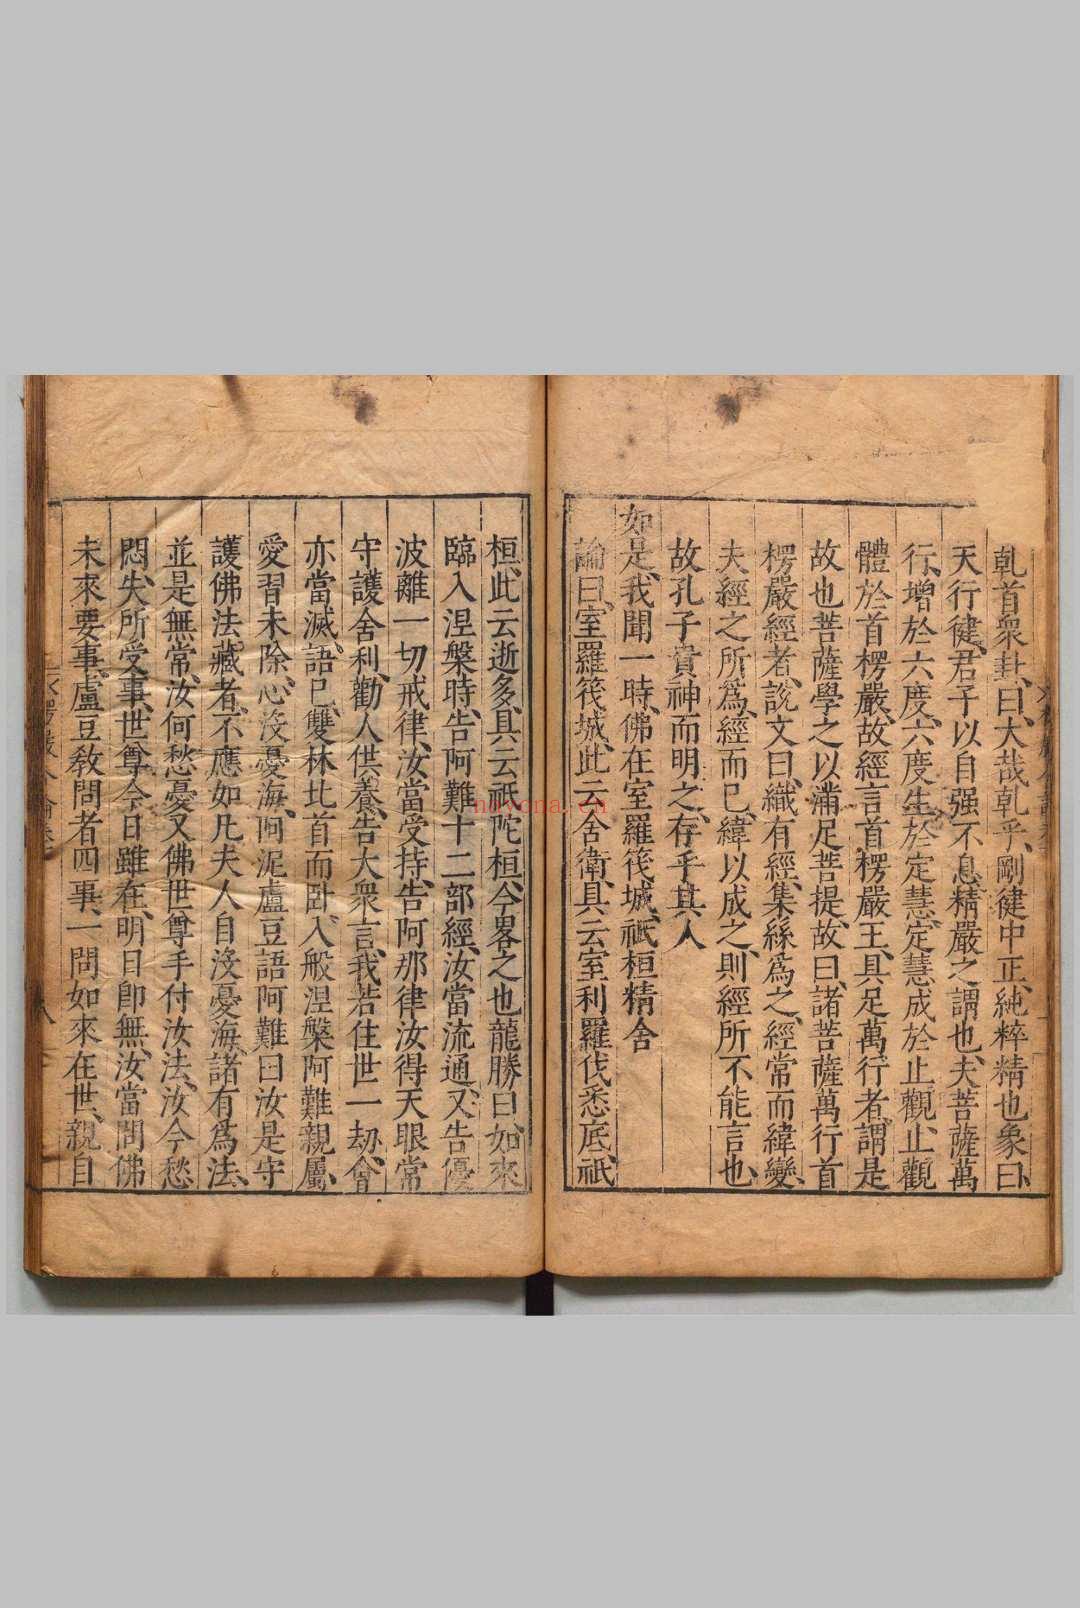 乹首衆卦、曰、大哉乹乎、剛健中正、純粹精也、象曰、
天行健、君子以自强不息、精嚴之謂也、夫菩薩萬
行、增於六度、六度生於定慧、定慧成於止觀、止觀
體於首楞嚴、故經言首楞嚴王、具足萬行者、謂是
故也、菩薩學之以滿足菩提、故曰、諸菩薩萬行首
楞嚴經者、說文曰、織有經、集絲爲之、經常而緯變、
夫經之所爲、經而已、緯以成之、則經所不能言也、
故孔子貴神而明之、存乎其人
如是、我聞一時、佛在室羅筏城、祇桓精舍
論曰、室羅筏城、此云舍衛、具云室利羅伐悉底、祇
桓、此云逝多、具云祇陀桓、今畧之也、龍勝曰、如來
臨入涅槃時、告阿難十二部經、汝當流通、又告優
波離一切戒律、汝當受持、告阿那律汝得天眼常
守護舍利、勸人供養、告大衆言、我若住世一劫、會
亦當滅、語已、雙林北首而臥、入般涅槃阿難親屬、
愛習未除、心沒憂海、阿泥盧豆語阿難曰汝是守
護佛法藏者、不應如凡夫人自沒憂海、諸有爲法、
並是無常、汝何愁憂又佛世尊手付汝法、汝今愁
悶、失所受事、世尊今日雖在、明日卽無、汝當問佛
未來要事、盧豆敎問者四事、一問如來在世、親自
楞嚴合論卷一
八
novona.cn